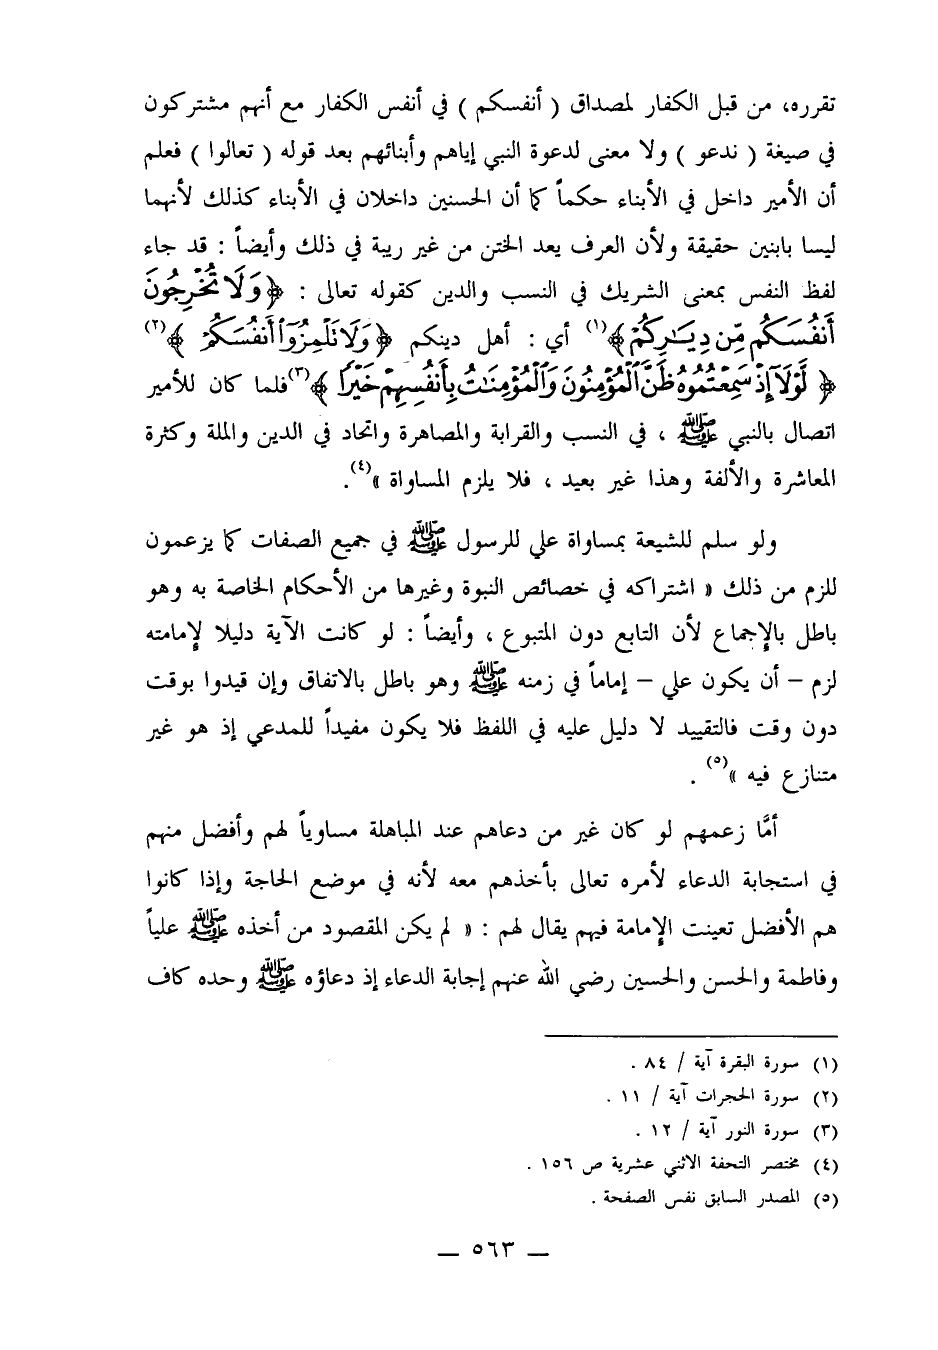 تقرره، من قبل الكفار لمصداق ( أنفسكم ) في أنفس الكفار مع أنهم مشتركون
في صيغة ( ندعو ) ولا معنى لدعوة النبي إياهم وأبنائهم بعد قوله ( تعالوا ) فعلم
أن الأمير داخل في الأبناء حكماً كما أن الحسنين داخلان في الأبناء كذلك لأنهما
ليسا بابنين حقيقة ولأن العرف يعد الختن من غير ريبة في ذلك وأيضاً : قد جاء
لفظ النفس بمعنى الشريك في النسب والدين كقوله تعالى : ﴿ وَلَا تُخْرِجُونَ
أَنفُسَكُم مِّن دِيَٰرِكُمْ ﴾(١) أي : أهل دينكم ﴿ وَلَا تَلْمِزُوٓا۟ أَنفُسَكُمْ ﴾(٢)
﴿ لَّوْلَآ إِذْ سَمِعْتُمُوهُ ظَنَّ ٱلْمُؤْمِنُونَ وَٱلْمُؤْمِنَٰتُ بِأَنفُسِهِمْ خَيْرًا ﴾(٣) فلما كان للأمير
اتصال بالنبي ﷺ ، في النسب والقرابة والمصاهرة واتحاد في الدين والملة وكثرة
المعاشرة والألفة وهذا غير بعيد ، فلا يلزم المساواة »(٤).
ولو سلم للشيعة بمساواة علي للرسول ﷺ في جميع الصفات كما يزعمون
للزم من ذلك « اشتراكه في خصائص النبوة وغيرها من الأحكام الخاصة به وهو
باطل بالإجماع لأن التابع دون المتبوع ، وأيضاً : لو كانت الآية دليلا لإمامته
لزم – أن يكون علي – إماماً في زمنه ﷺ وهو باطل بالاتفاق وإن قيدوا بوقت
دون وقت فالتقييد لا دليل عليه في اللفظ فلا يكون مفيداً للمدعي إذ هو غير
متنازع فيه »(٥) .
أمَّا زعمهم لو كان غير من دعاهم عند المباهلة مساوياً لهم وأفضل منهم
في استجابة الدعاء لأمره تعالى بأخذهم معه لأنه في موضع الحاجة وإذا كانوا
هم الأفضل تعينت الإمامة فيهم يقال لهم : « لم يكن المقصود من أخذه ﷺ علياً
وفاطمة والحسن والحسين رضي الله عنهم إجابة الدعاء إذ دعاؤه ﷺ وحده كاف
(١) سورة البقرة آية / ٨٤ .
(٢) سورة الحجرات آية / ١١ .
(٣) سورة النور آية / ١٢ .
(٤) مختصر التحفة الاثني عشرية ص ١٥٦ .
(٥) المصدر السابق نفس الصفحة .
— ٥٦٣ —